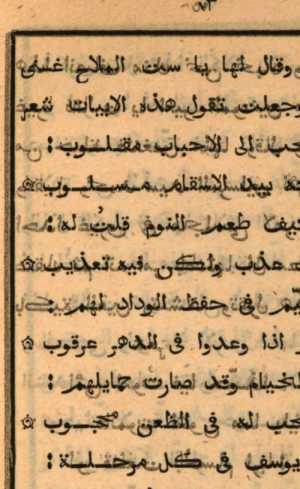 وقال لها يا ست الملاح غنى
وجعلت تقول هذه الابيات شعر
الى الاحباب مقلوب :
بيد الاسقام مسلوب ۞
كيف طعم النوم قلت له :
عذب ولكن فيه تعذيب ۞
فى حفظ الوداد لهم :
اذا وعدوا فى الدهر عرقوب ۞
وقد صارت حمايلهم :
له فى الظعن محجوب ۞
يوسف فى كل مرحلة :